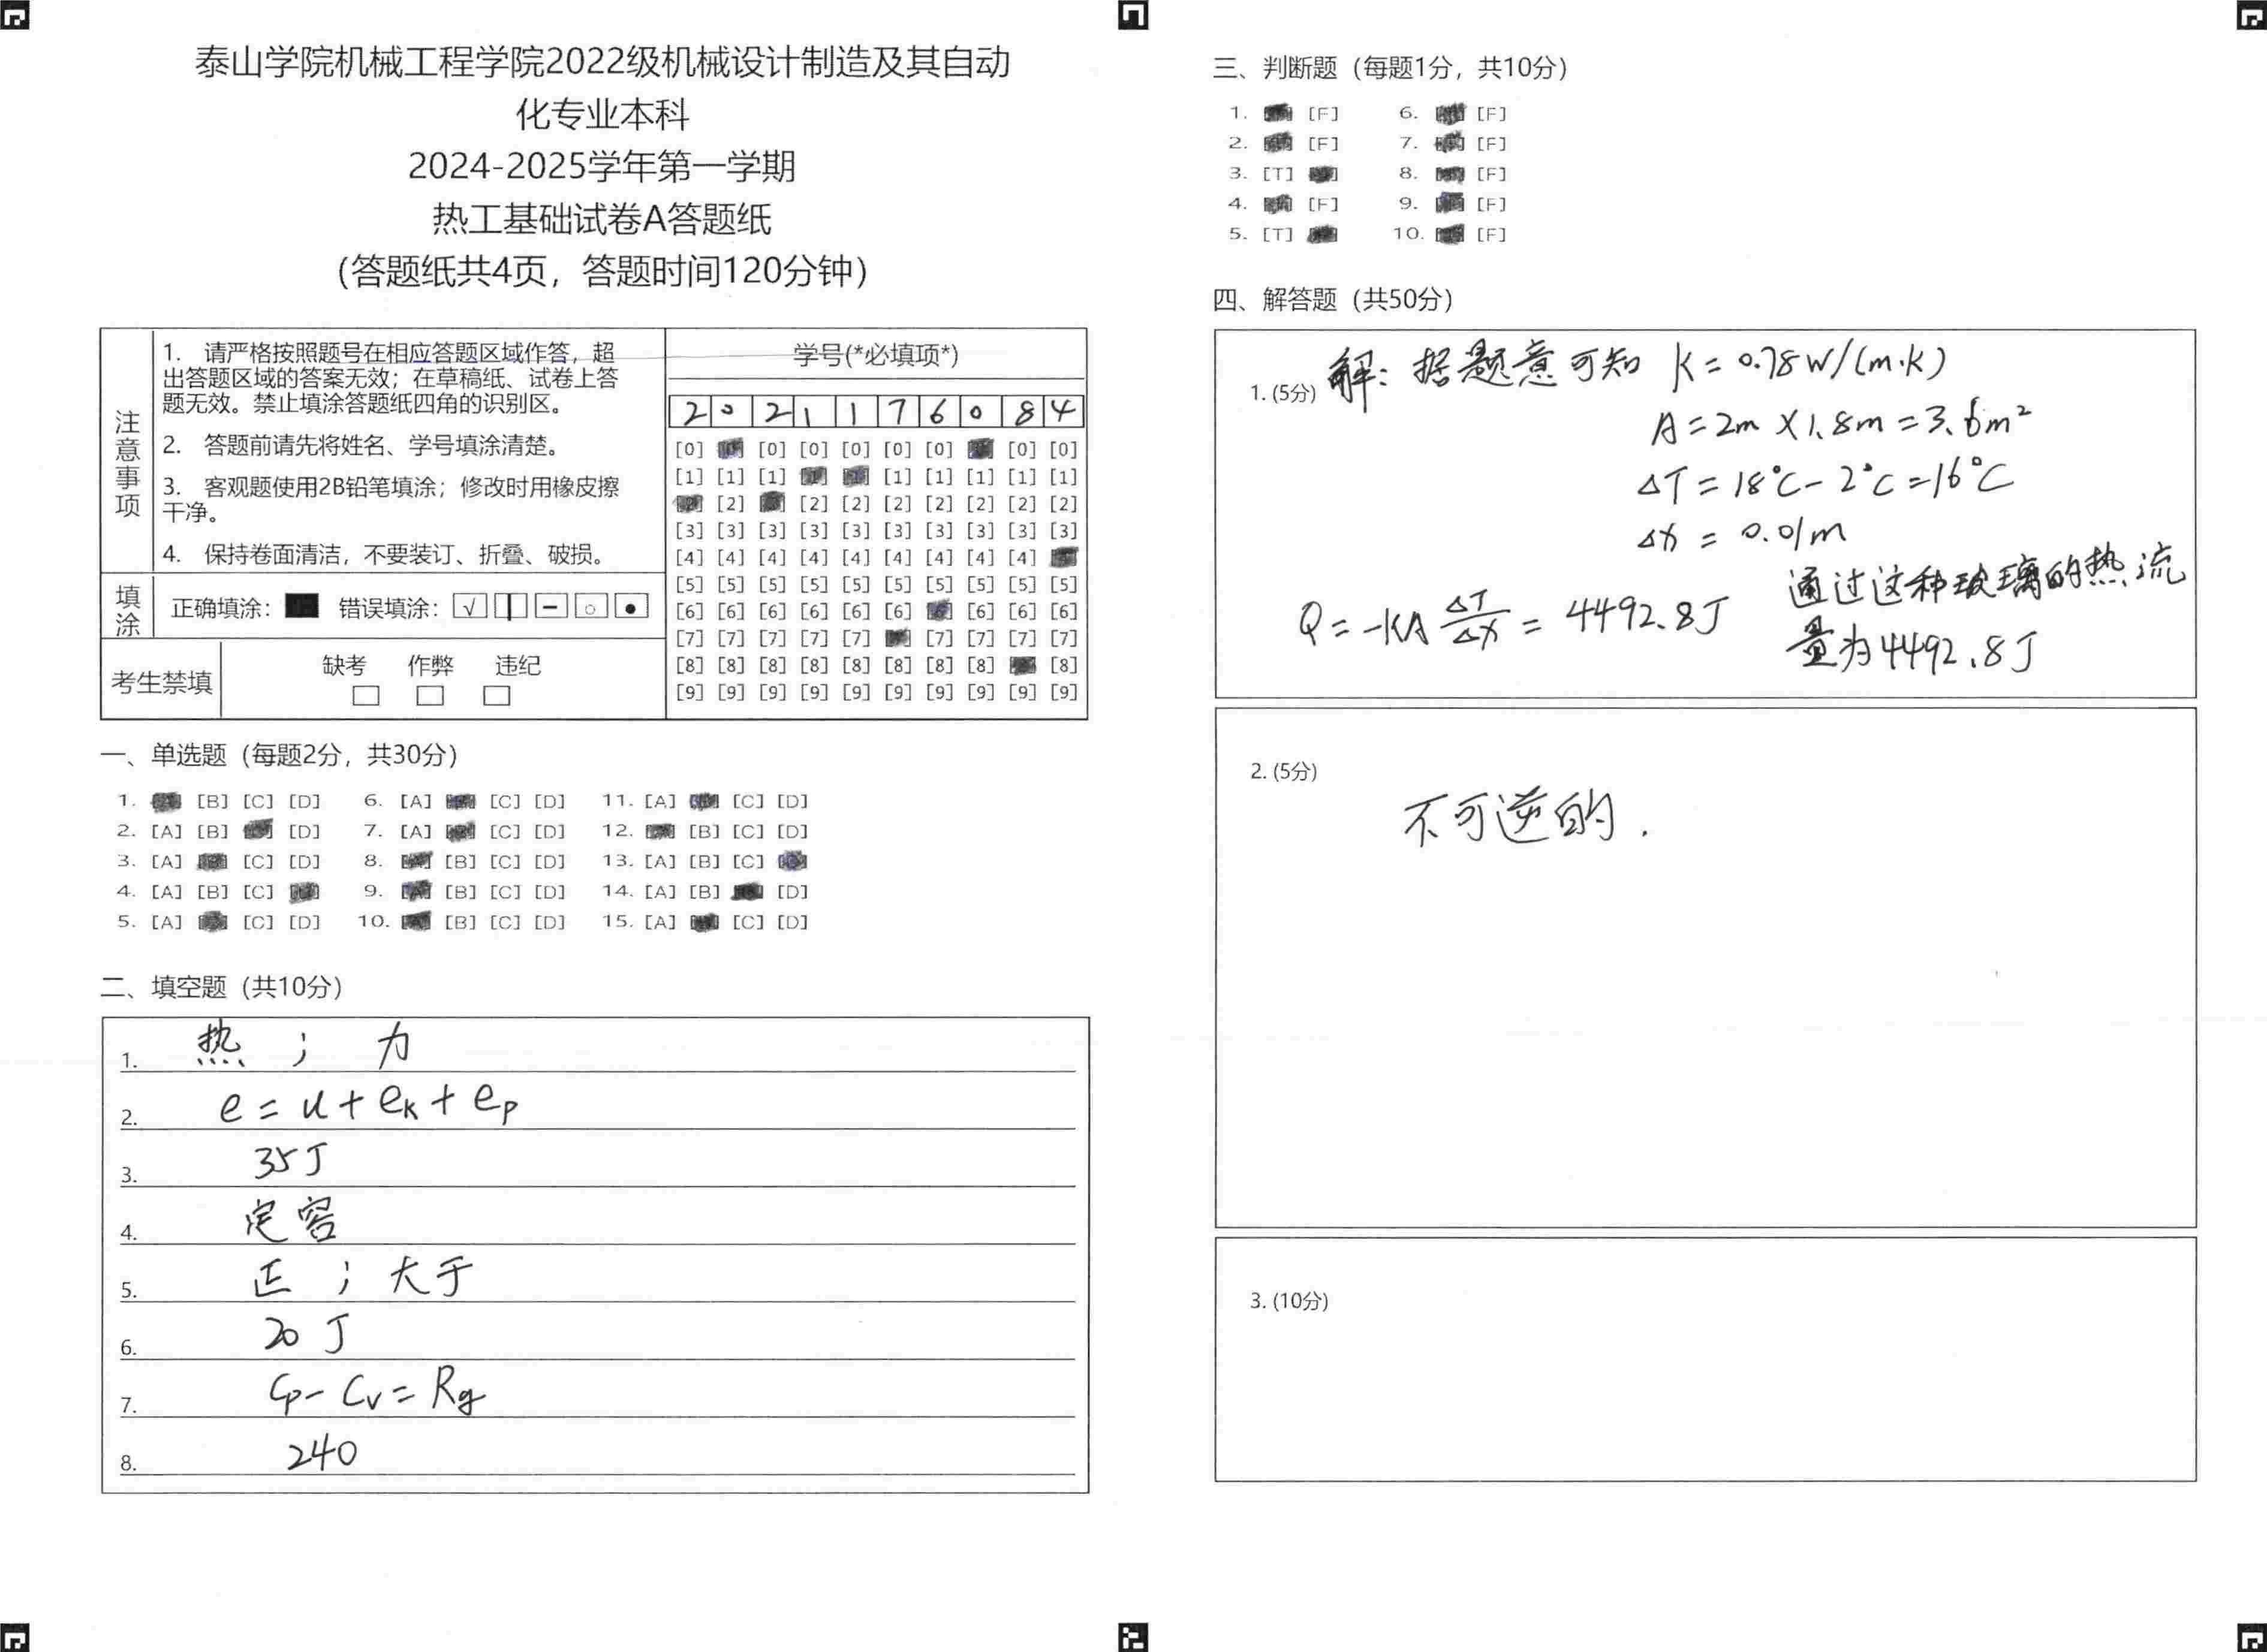 泰山学院机械工程学院2022级机械设计制造及其自动
化专业本科
2024-2025学年第一学期
热工基础试卷A答题纸
(答题纸共4页，答题时间120分钟)
注意事项
1. 请严格按照题号在相应答题区域作答，超
出答题区域的答案无效；在草稿纸、试卷上答
题无效。禁止填涂答题纸四角的识别区。
2. 答题前请先将姓名、学号填涂清楚。
3. 客观题使用2B铅笔填涂；修改时用橡皮擦
干净。
4. 保持卷面清洁，不要装订、折叠、破损。
填涂
正确填涂： 错误填涂： √
考生禁填
缺考 作弊 违纪
学号(*必填项*)
2 0 2 1 1 7 6 0 8 4
[0] [0] [0] [0] [0] [0] [0] [0]
[1] [1] [1] [1] [1] [1] [1] [1]
[2] [2] [2] [2] [2] [2] [2] [2]
[3] [3] [3] [3] [3] [3] [3] [3] [3] [3]
[4] [4] [4] [4] [4] [4] [4] [4] [4]
[5] [5] [5] [5] [5] [5] [5] [5] [5] [5]
[6] [6] [6] [6] [6] [6] [6] [6] [6]
[7] [7] [7] [7] [7] [7] [7] [7] [7]
[8] [8] [8] [8] [8] [8] [8] [8] [8]
[9] [9] [9] [9] [9] [9] [9] [9] [9] [9]
一、单选题（每题2分，共30分）
1. [B] [C] [D] 6. [A] [C] [D] 11. [A] [C] [D]
2. [A] [B] [D] 7. [A] [C] [D] 12. [B] [C] [D]
3. [A] [C] [D] 8. [B] [C] [D] 13. [A] [B] [C]
4. [A] [B] [C] 9. [A] [B] [C] [D] 14. [A] [B] [D]
5. [A] [C] [D] 10. [B] [C] [D] 15. [A] [C] [D]
二、填空题（共10分）
1. 热 ； 力
2. e = u + eₖ + eₚ
3. 35 J
4. 定容
5. 正 ； 大于
6. 20 J
7. Cp - Cv = Rg
8. 240
三、判断题（每题1分，共10分）
1. [F] 6. [F]
2. [F] 7. [F]
3. [T] 8. [F]
4. [F] 9. [F]
5. [T] 10. [F]
四、解答题（共50分）
1. (5分) 解：据题意可知 K = 0.78 W/(m·K)
A = 2m × 1.8m = 3.6m²
ΔT = 18°C - 2°C = 16°C
Δx = 0.01m
Q = -KA ΔT/Δx = 4492.8J
通过这种玻璃的热流
量为4492.8J
2. (5分)
不可逆的.
3. (10分)